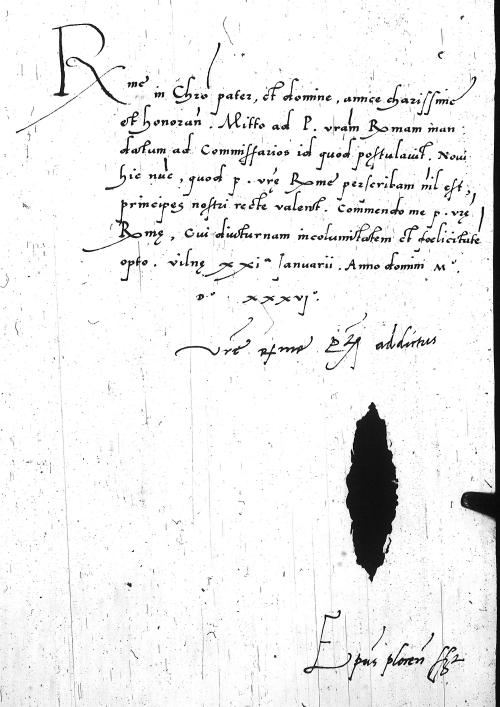 Rme in Chro pater, et domine, amice charissime
et honoran. Mitto ad P. vram Rmam man
datum ad Commissarios id quod postulavit. Novi
hic nuc, quod p. vrę Rme perscribam nil est,
principes nostri recte valent. Commendo me p. vrę
Rmę, Cui diuturnam incolumitatem et foelicitate
opto. vilnę xxia Januarii. Anno domini Mo.
Do. xxxvjo.
vrę Rme addictus
Epus plocen